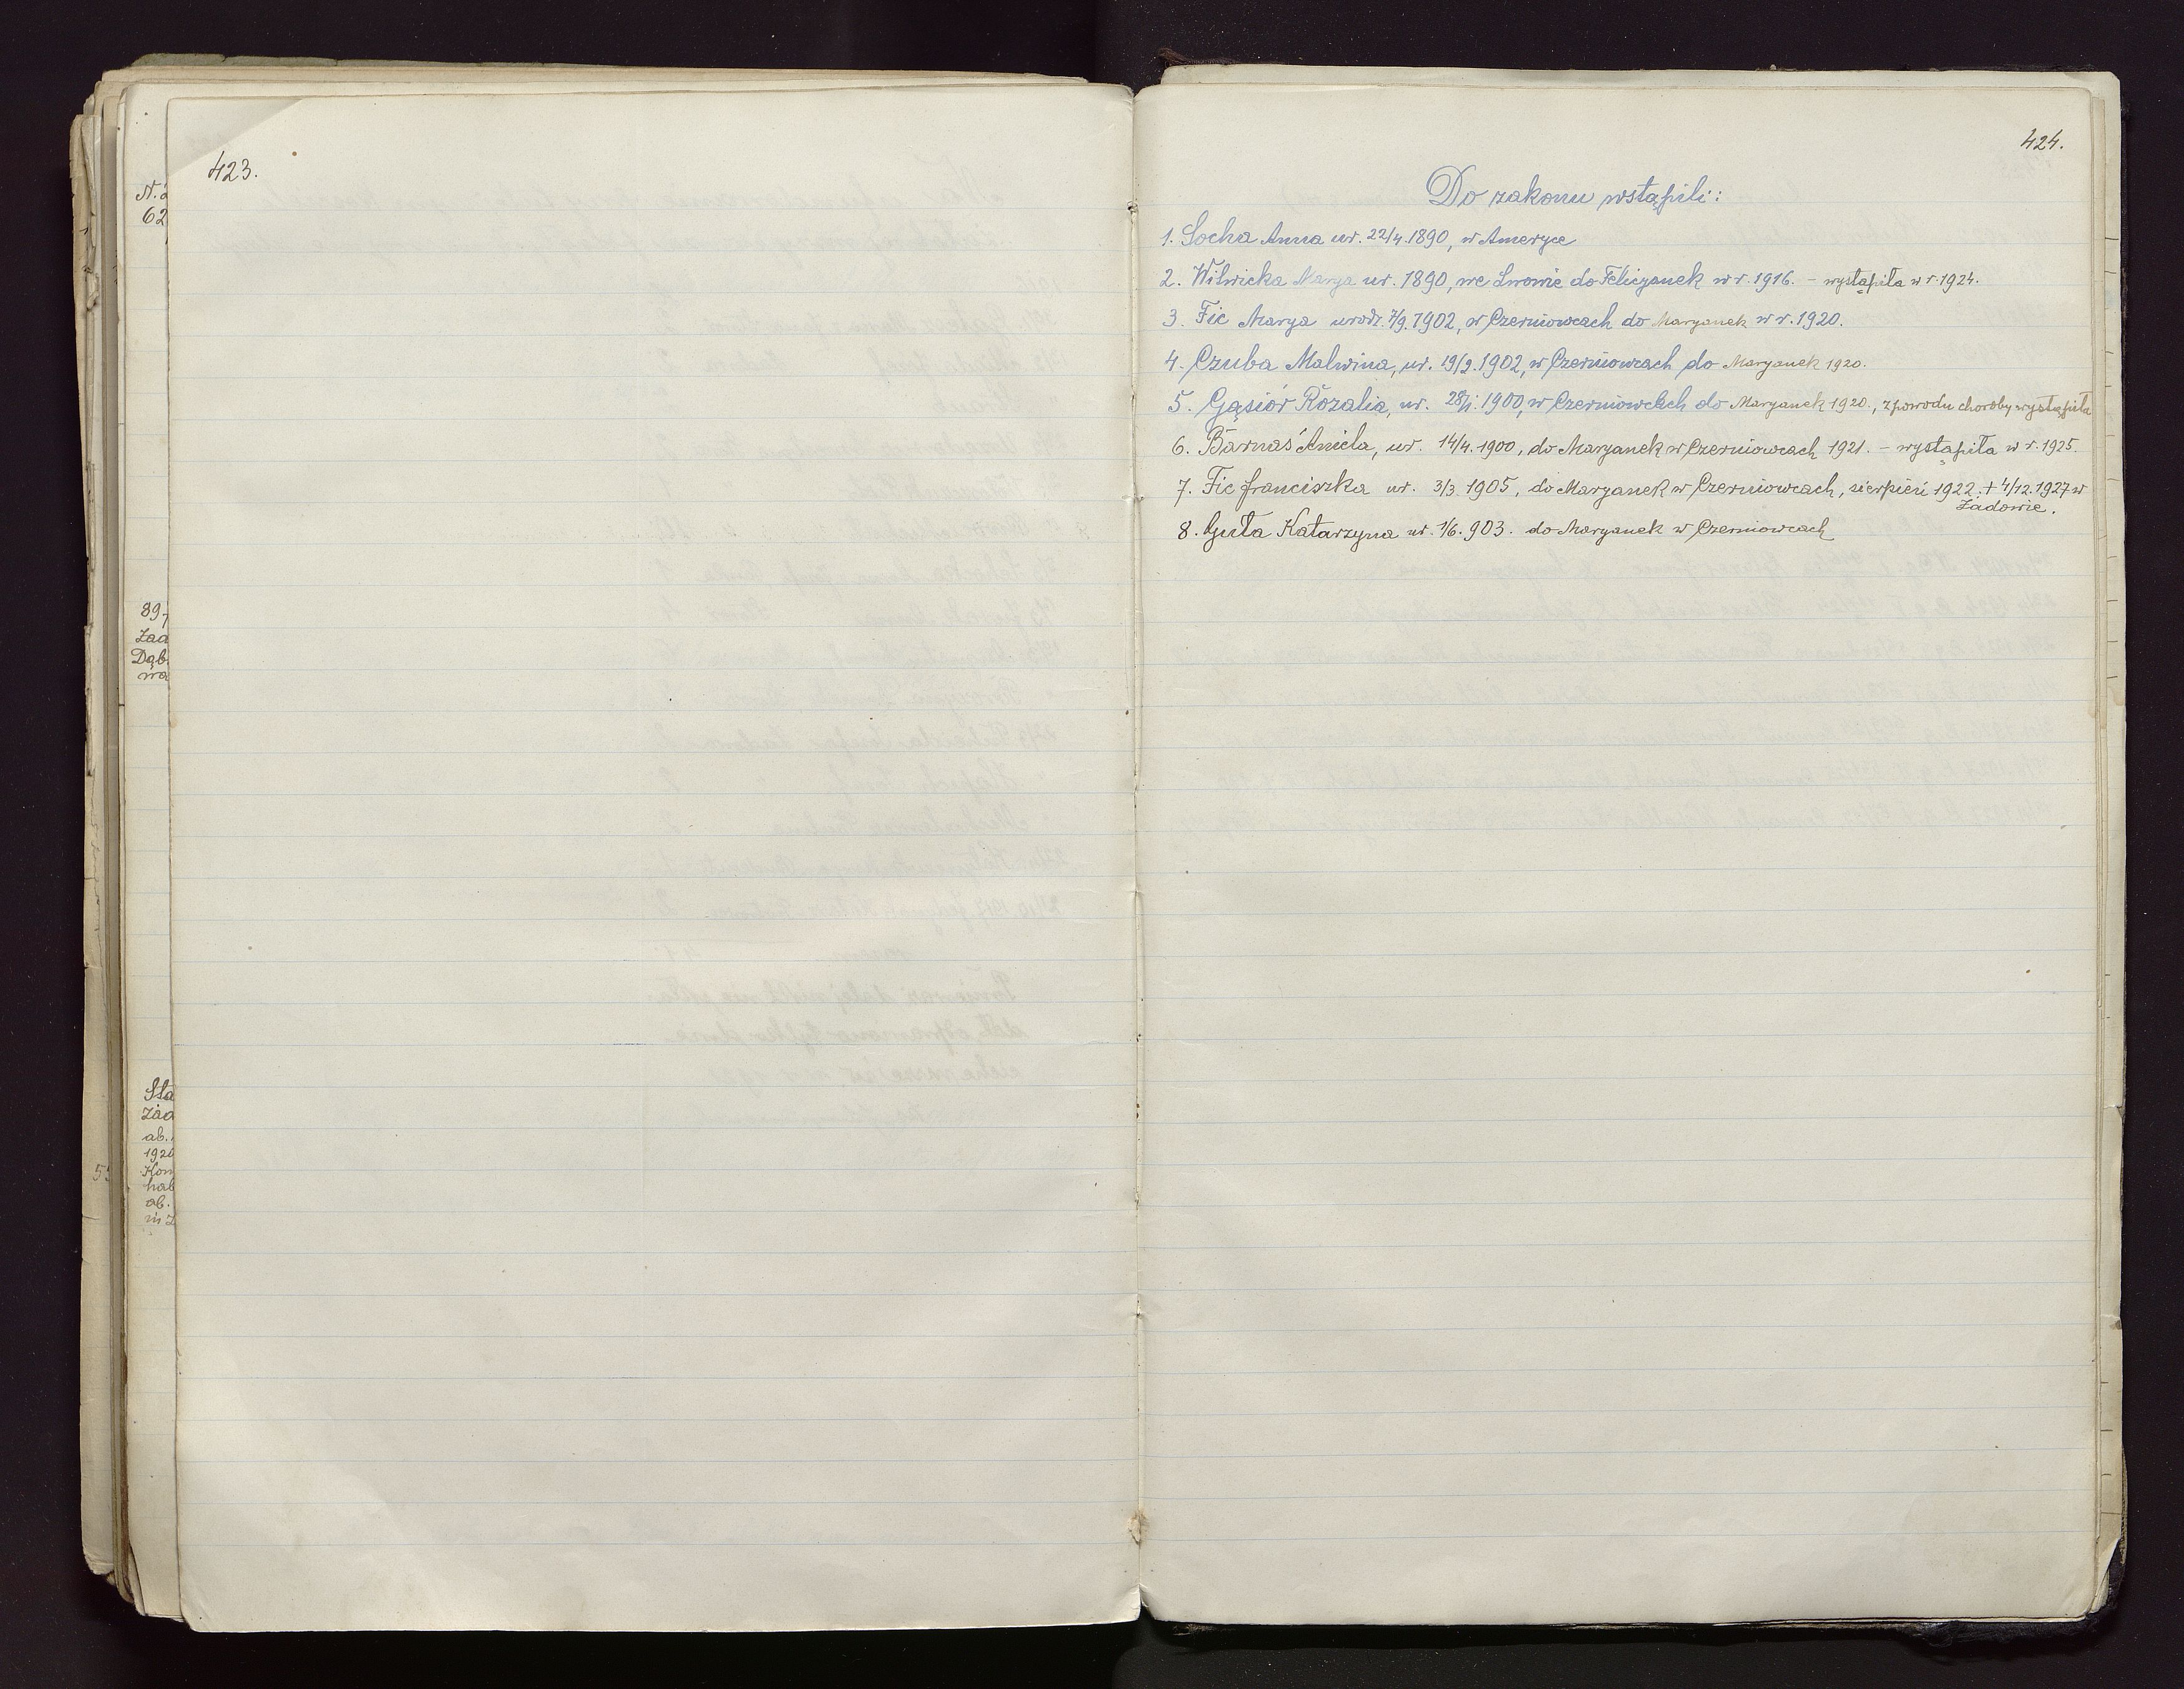 423.
N. 2
62
89,
Żad
Dąb.
Sta
Żad
ab.
192
Kon
hab
ab.
in Z
424.
Do zakonu wstąpili:
1. Socha Anna ur. 22/4.1890, w Ameryce
2. Wilwicka Marya ur. 1890, we Lwowie do Felicyanek w r. 1916. – wystąpiła w r. 1924.
3. Fic Marya urodz. 7/9.1902, w Czerniowcach do Maryanek w r. 1920.
4. Czuba Malwina, ur. 19/2.1902, w Czerniowcach do Maryanek 1920.
5. Gąsiór Rozalia, ur. 28/1.1900, w Czerniowcach do Maryanek 1920., z powodu choroby wystąpiła
6. Barnaś Aniela, ur. 14/4.1900, do Maryanek w Czerniowcach 1921. – wystąpiła w r. 1925.
7. Fic Franciszka ur. 3/3 1905, do Maryanek w Czerniowcach, sierpień 1922. + 4/12.1927 w
Żadowie.
8. Guła Katarzyna ur. 1/6.903. do Maryanek w Czerniowcach